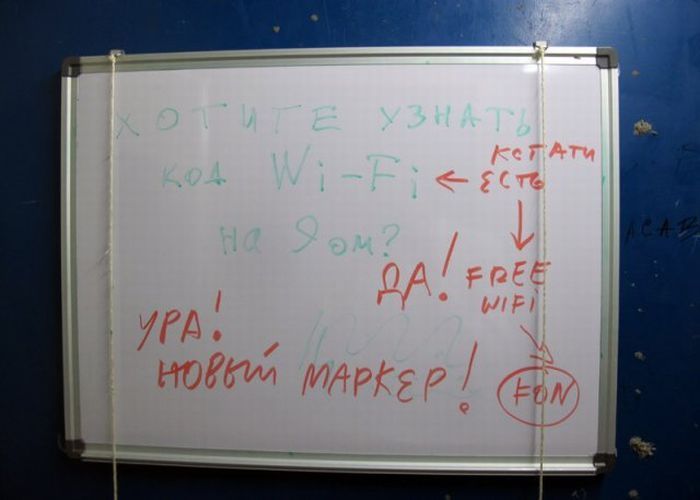 ХОТИТЕ УЗНАТЬ
код Wi-Fi ← КСТАТИ ЕСТЬ
на 9ом?
ДА! FREE
WIFI
УРА!
НОВЫЙ МАРКЕР!
FON